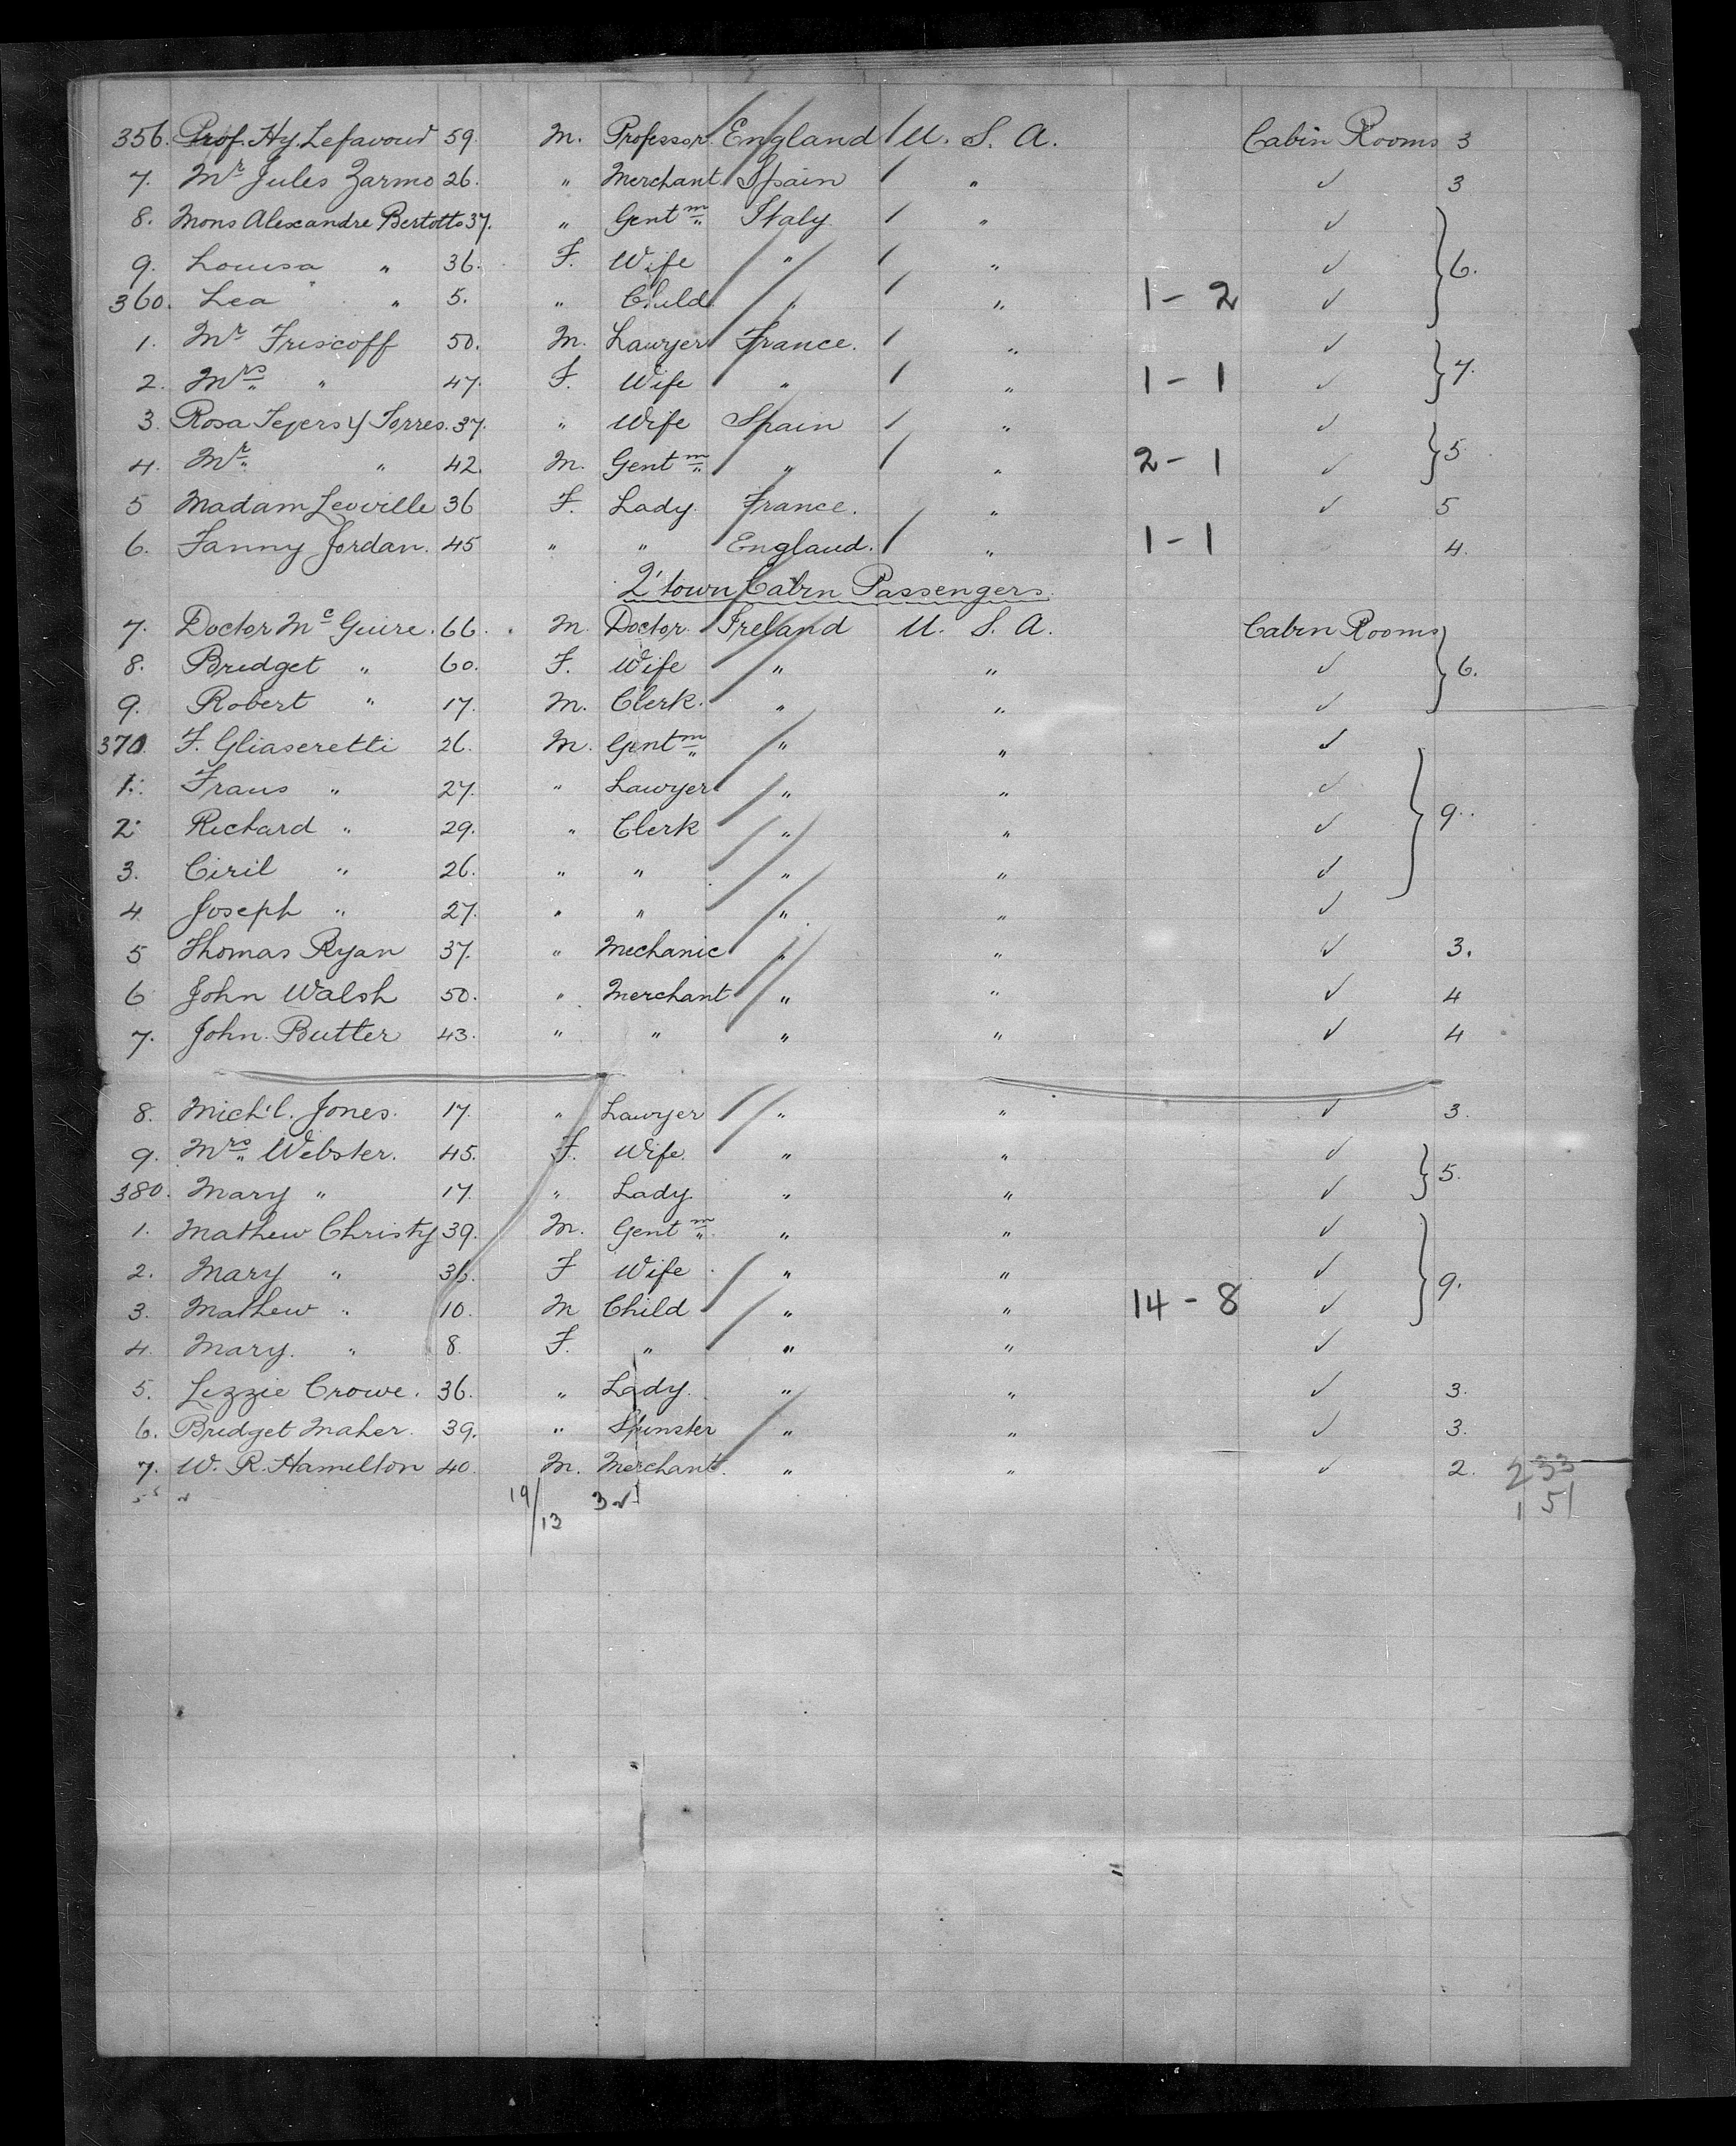 356. Prof. Hy. Lefavour 59. M. Professor England U. S. A. Cabin Rooms 3
7. Mr Jules Zarmo 26. " Merchant Spain " ✓ 3
8. Mons Alexandre Bertotto 37. " Gentm Italy " ✓
9. Louisa " 36. F. Wife " " ✓ } 6.
360. Lea " 5. " Child " " 1 - 2 ✓
1. Mr Friscoff 50. M. Lawyer France. " ✓
2. Mrs " 47. F. Wife " " 1 - 1 ✓ } 7.
3. Rosa Tejers y Torres. 37. " Wife Spain " ✓
4. Mr " 42. M. Gentm " " 2 - 1 ✓ } 5
5 Madam Leoville 36 F. Lady France. " ✓ 5
6. Fanny Jordan. 45 " " England. " 1 - 1 4.
Q'town Cabin Passengers.
7. Doctor McGuire. 66. M. Doctor. Ireland U. S. A. Cabin Rooms
8. Bridget " 60. F. Wife " " ✓ } 6.
9. Robert " 17. M. Clerk. " " ✓
370. F. Gliaseretti 26. M. Gentm " " ✓
1. Frans " 27. " Lawyer " " ✓
2. Richard " 29. " Clerk " " ✓ } 9.
3. Ciril " 26. " " " " ✓
4 Joseph " 27. " " " " ✓
5 Thomas Ryan 37. " Mechanic " " ✓ 3.
6 John Walsh 50. " Merchant " " ✓ 4
7. John Butler 43. " " " " ✓ 4
8. Mich'l. Jones. 17. " Lawyer " " ✓ 3.
9. Mrs Webster. 45. F. Wife. " " ✓
380. Mary " 17. " Lady " " ✓ } 5.
1. Mathew Christy 39. M. Gentm " " ✓
2. Mary " 36. F Wife " " ✓
3. Mathew " 10. M Child " " 14 - 8 ✓ } 9.
4. Mary. " 8. F. " " " ✓
5. Lizzie Crowe. 36. " Lady. " " ✓ 3.
6. Bridget Maher. 39. " Spinster " " ✓ 3.
7. W. R. Hamilton 40. M. Merchant. " " ✓ 2. 233
19/13 151